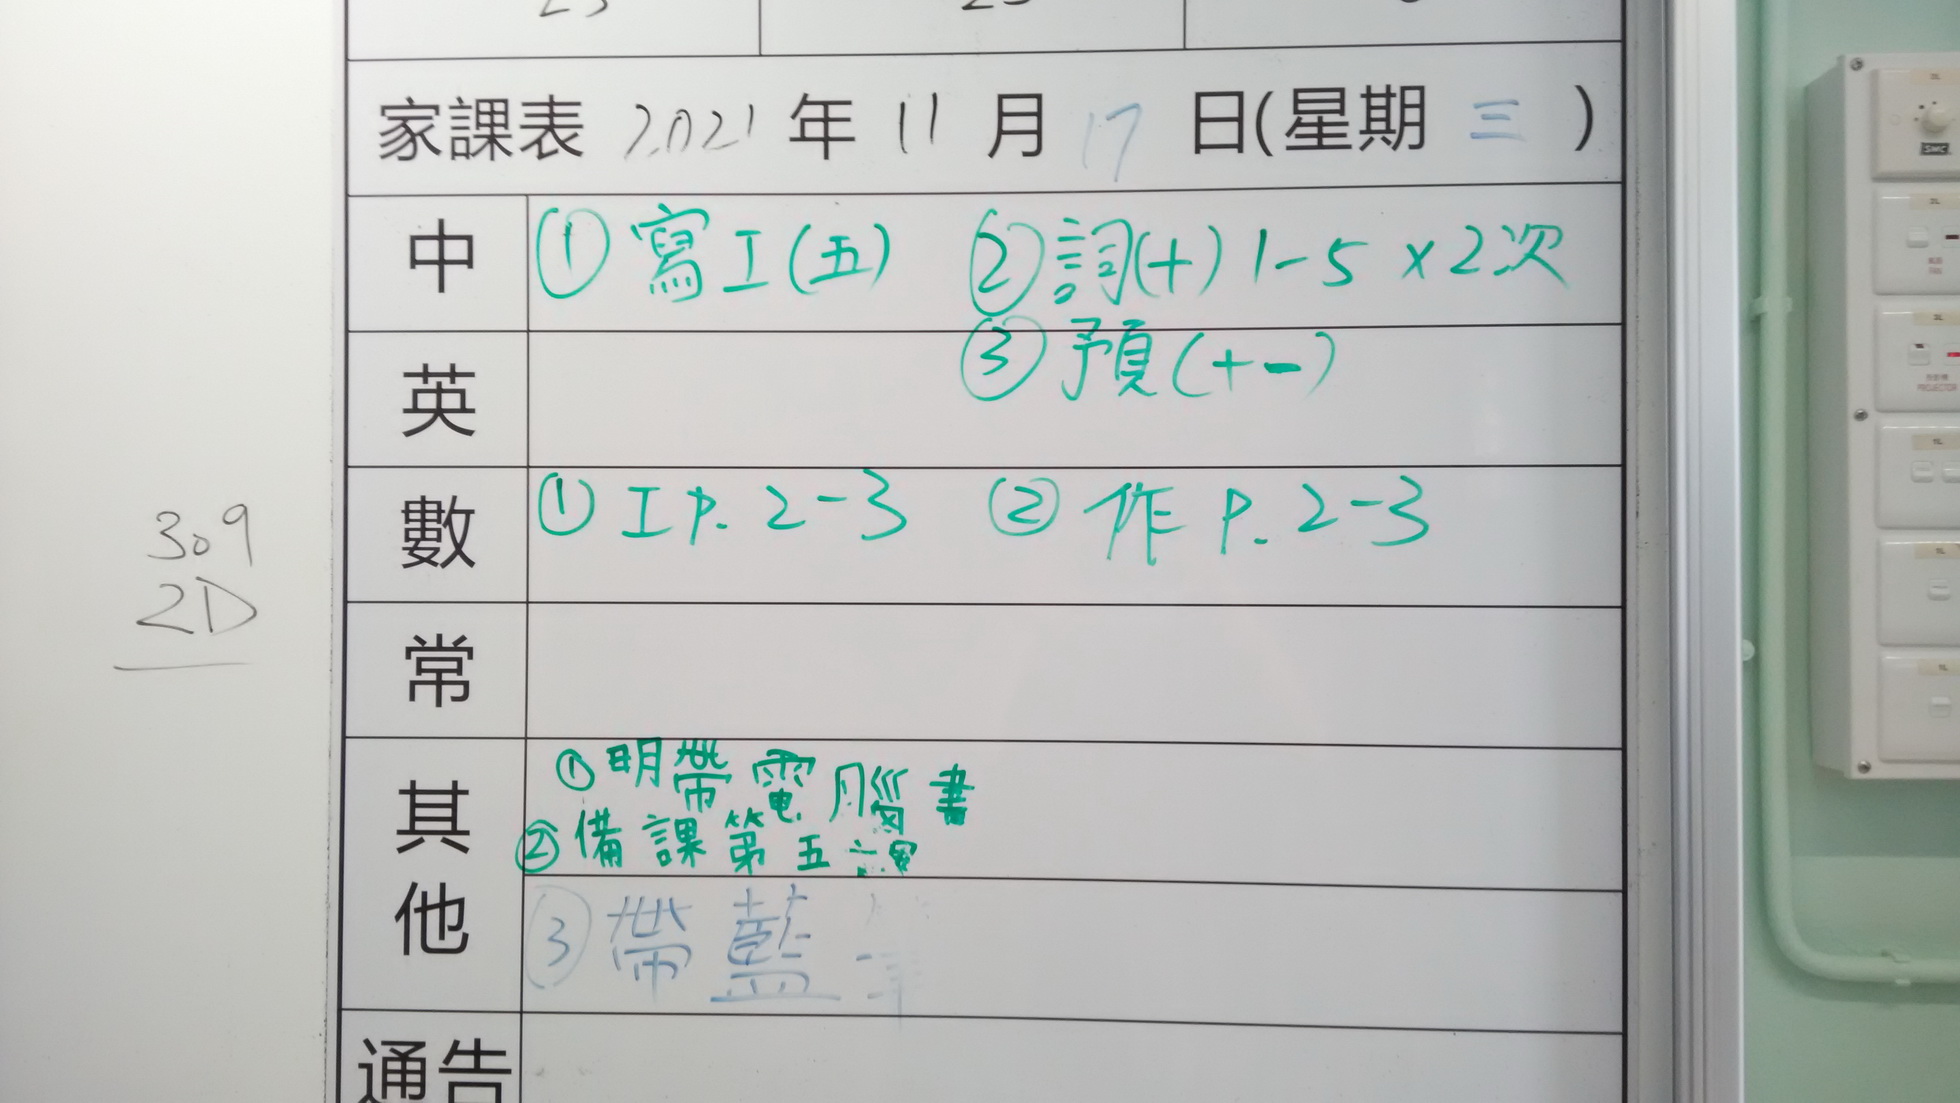 家課表 2021 年 11 月 17 日(星期 三 )
中 ①寫工(五) ②詞(十) 1-5 x 2次
③預(十一)
英
數 ①工 P. 2-3 ②作 P. 2-3
常
其他
①明帶電腦書
②備課第五
③帶藍
通告
309
2D
SMC
PROJECTOR